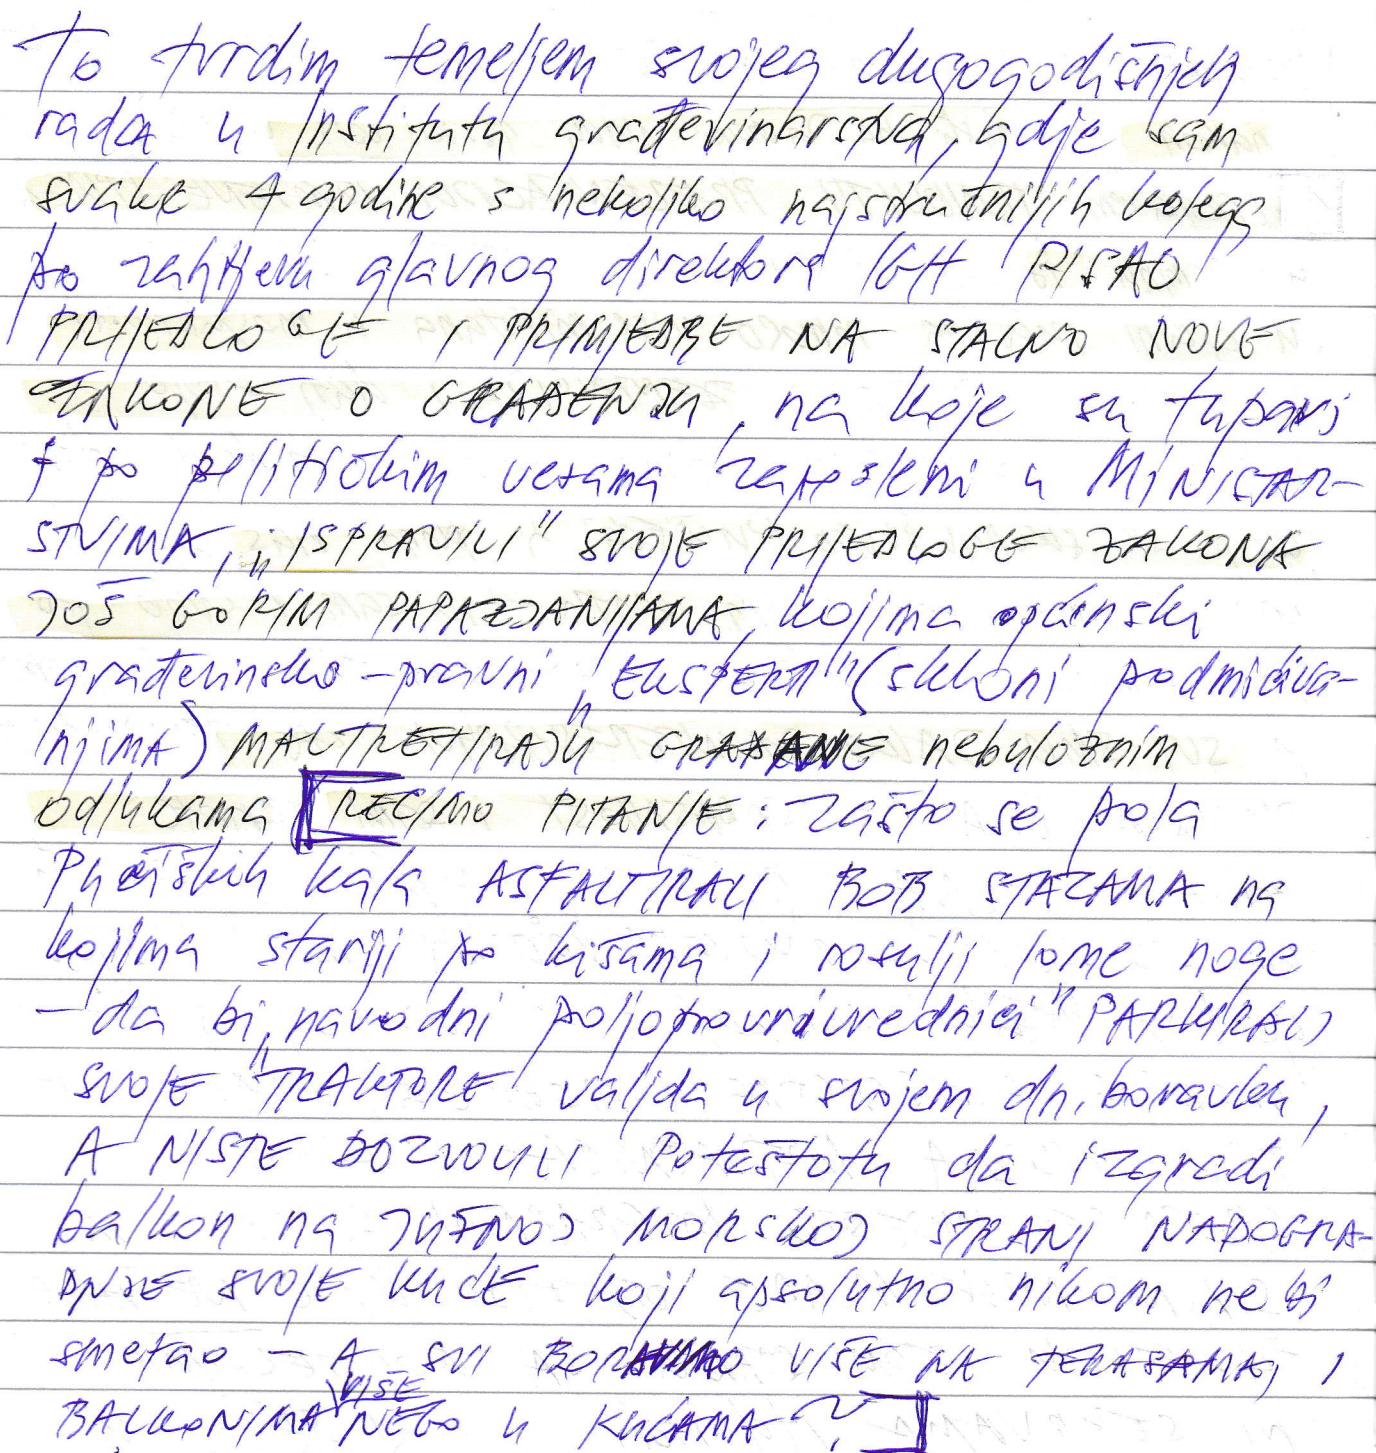 To tvrdim temeljem svojeg dugogodišnjeg
rada u Institutu građevinarstva, gdje sam
svake 4 godine s nekoliko najstručnijih kolega
po zahtjevu glavnog direktora IGH PISAO
PRIJEDLOGE I PRIMJEDBE NA STALNO NOVE
ZAKONE O GRAĐENJU, na koje su tupavi
i po političkim vezama zaposleni u MINISTAR-
STVIMA, „ISPRAVILI" SVOJE PRIJEDLOGE ZAKONA
JOŠ GORIM PAPAZJANIJAMA, kojima općinski
građevinsko-pravni „EKSPERTI" (skloni podmićiva-
njima) MALTRETIRAJU GRAĐANE nebuloznim
odlukama [RECIMO PITANJE: zašto se pola
Pučiških kala ASFALTIRALI BOB STAZAMA na
kojima stariji po kišama i rosulji lome noge
- da bi „navodni poljoprivrednici" PARKIRALI
SVOJE "TRAKTORE valjda u svojem dn. boravku,
A NISTE DOZVOLILI Poteštotu da izgradi
balkon na JUŽNOJ MORSKOJ STRANI NADOGRA-
DNJE SVOJE KUĆE koji apsolutno nikom ne bi
smetao - A SVI BORAVIMO VIŠE NA TERASAMA, I
BALKONIMA VIŠE NEGO U KUĆAMA ?]